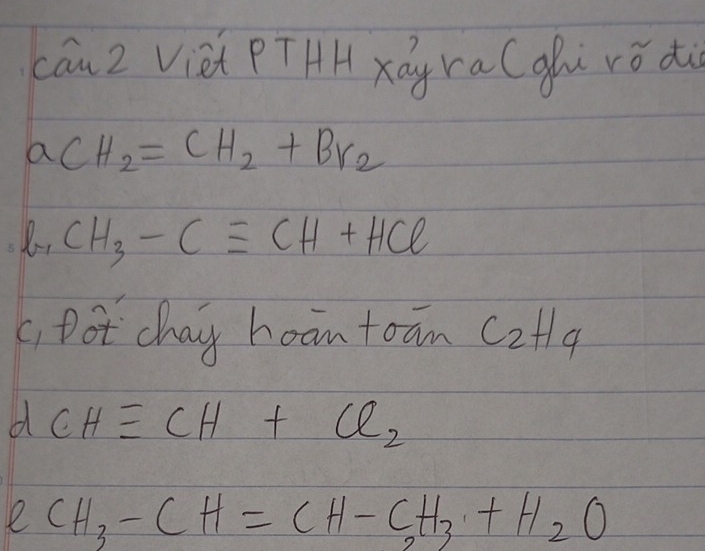 Câu 2 Viết PTHH xảy ra (ghi rõ
a CH₂ = CH₂ + Br₂
b, CH₃ - C ≡ CH + HCl
c, Đốt cháy hoàn toàn C₂H₄
d CH ≡ CH + Cl₂
e CH₃ - CH = CH - CH₃ + H₂O